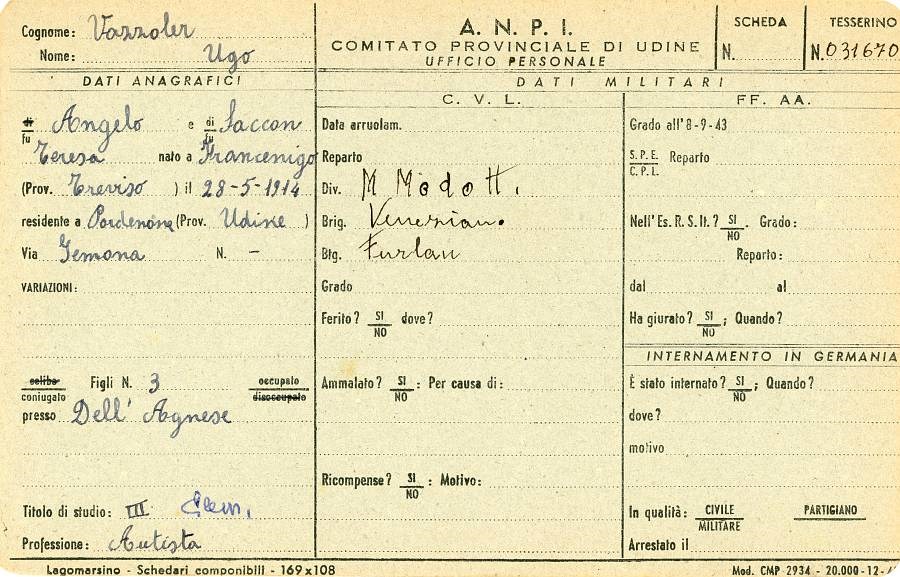 Cognome: Vazzoler
Nome: Ugo
A. N. P. I.
COMITATO PROVINCIALE DI UDINE
UFFICIO PERSONALE
SCHEDA
N.
TESSERINO
N. 031670
DATI ANAGRAFICI
di
fu Angelo e di
fu Saccon
Teresa nato a Francenigo
(Prov. Treviso ) il 28-5-1914
residente a Pordenone (Prov. Udine )
Via Gemona N. -
VARIAZIONI:
celibe
coniugato Figli N. 3 occupato
disoccupato
presso Dell' Agnese
Titolo di studio: III Elem.
Professione: Autista
DATI MILITARI
C. V. L.
Data arruolam.
Reparto
Div. M Modott.
Brig. Venezian.
Btg. Furlan
Grado
Ferito? SI
NO dove?
Ammalato? SI
NO : Per causa di:
Ricompense? SI
NO : Motivo:
FF. AA.
Grado all'8-9-43
S.P.E.
C.P.L. Reparto
Nell'Es. R. S. It.? SI
NO . Grado:
Reparto:
dal al
Ha giurato? SI
NO ; Quando?
INTERNAMENTO IN GERMANIA
È stato internato? SI
NO ; Quando?
dove?
motivo
In qualità: CIVILE
MILITARE PARTIGIANO
Arrestato il
Lagomarsino - Schedari componibili - 169x108
Mod. CMP 2934 - 20.000-12-4